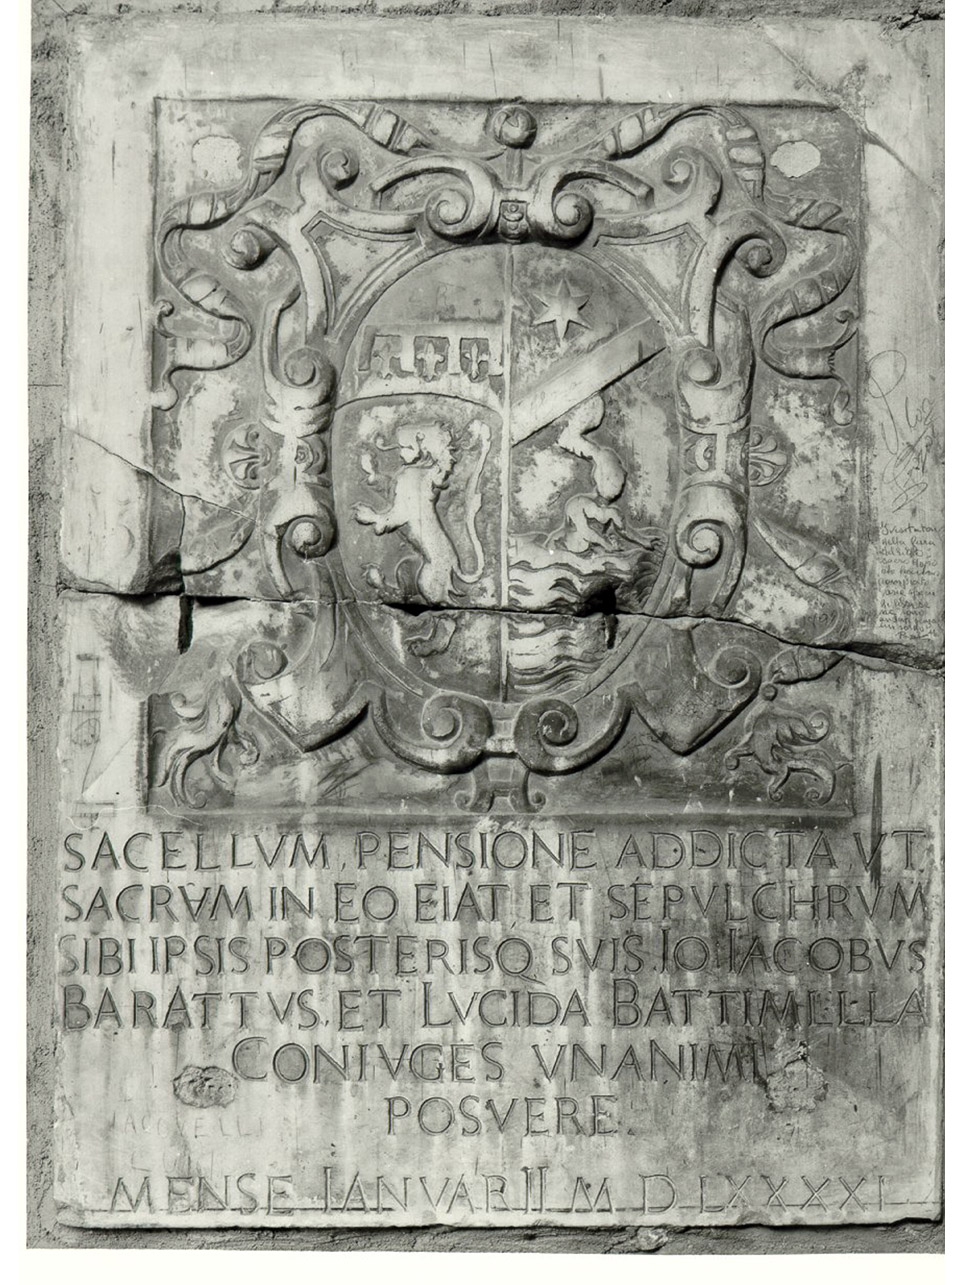 SACELLVM, PENSIONE ADDICTA VT
SACRVM IN EO FIAT, ET SEPVLCHRVM
SIBI IPSIS POSTERISQ. SVIS. IO. IACOBVS
BARATTVS. ET LVCIDA BATTIMELLA
CONIVGES VNANIMI
POSVERE.
MENSE IANVARII M D LXXXXI